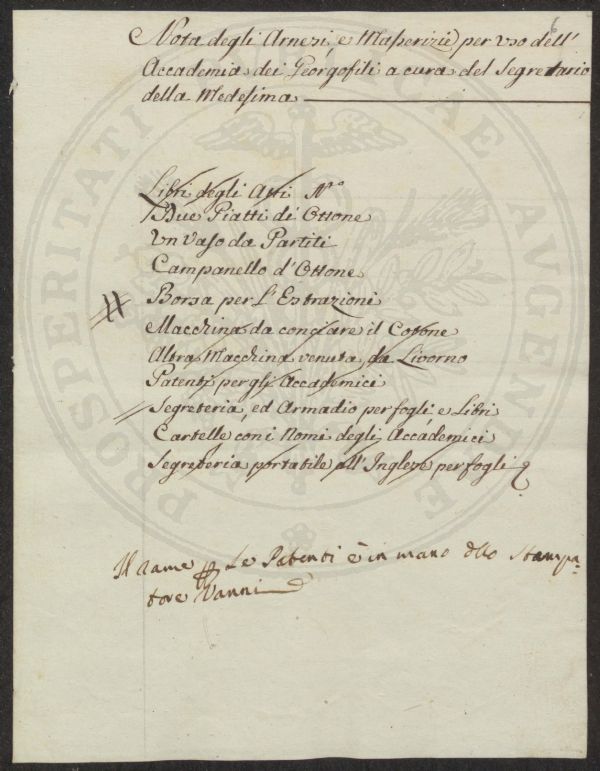 Nota degli Arnesi, e Masserizie per uso dell'
Accademia dei Georgofili a cura del Segretario
della Medesima
Libri degli Atti N.o
Due Piatti di Ottone
Un Vaso da Partiti
Campanello d'Ottone
Borsa per L'Estrazioni
Macchina da conciare il Cotone
Altra Macchina venuta da Livorno
Patenti per gli Accademici
Segreteria, ed Armadio per fogli e Libri
Cartelle con i Nomi degli Accademici
Segreteria portatile all'Inglese per fogli
Il rame p Le Patenti è in mano dllo Stampa=
tore Vanni
PROSPERITATI PUBLICAE AUGENDAE